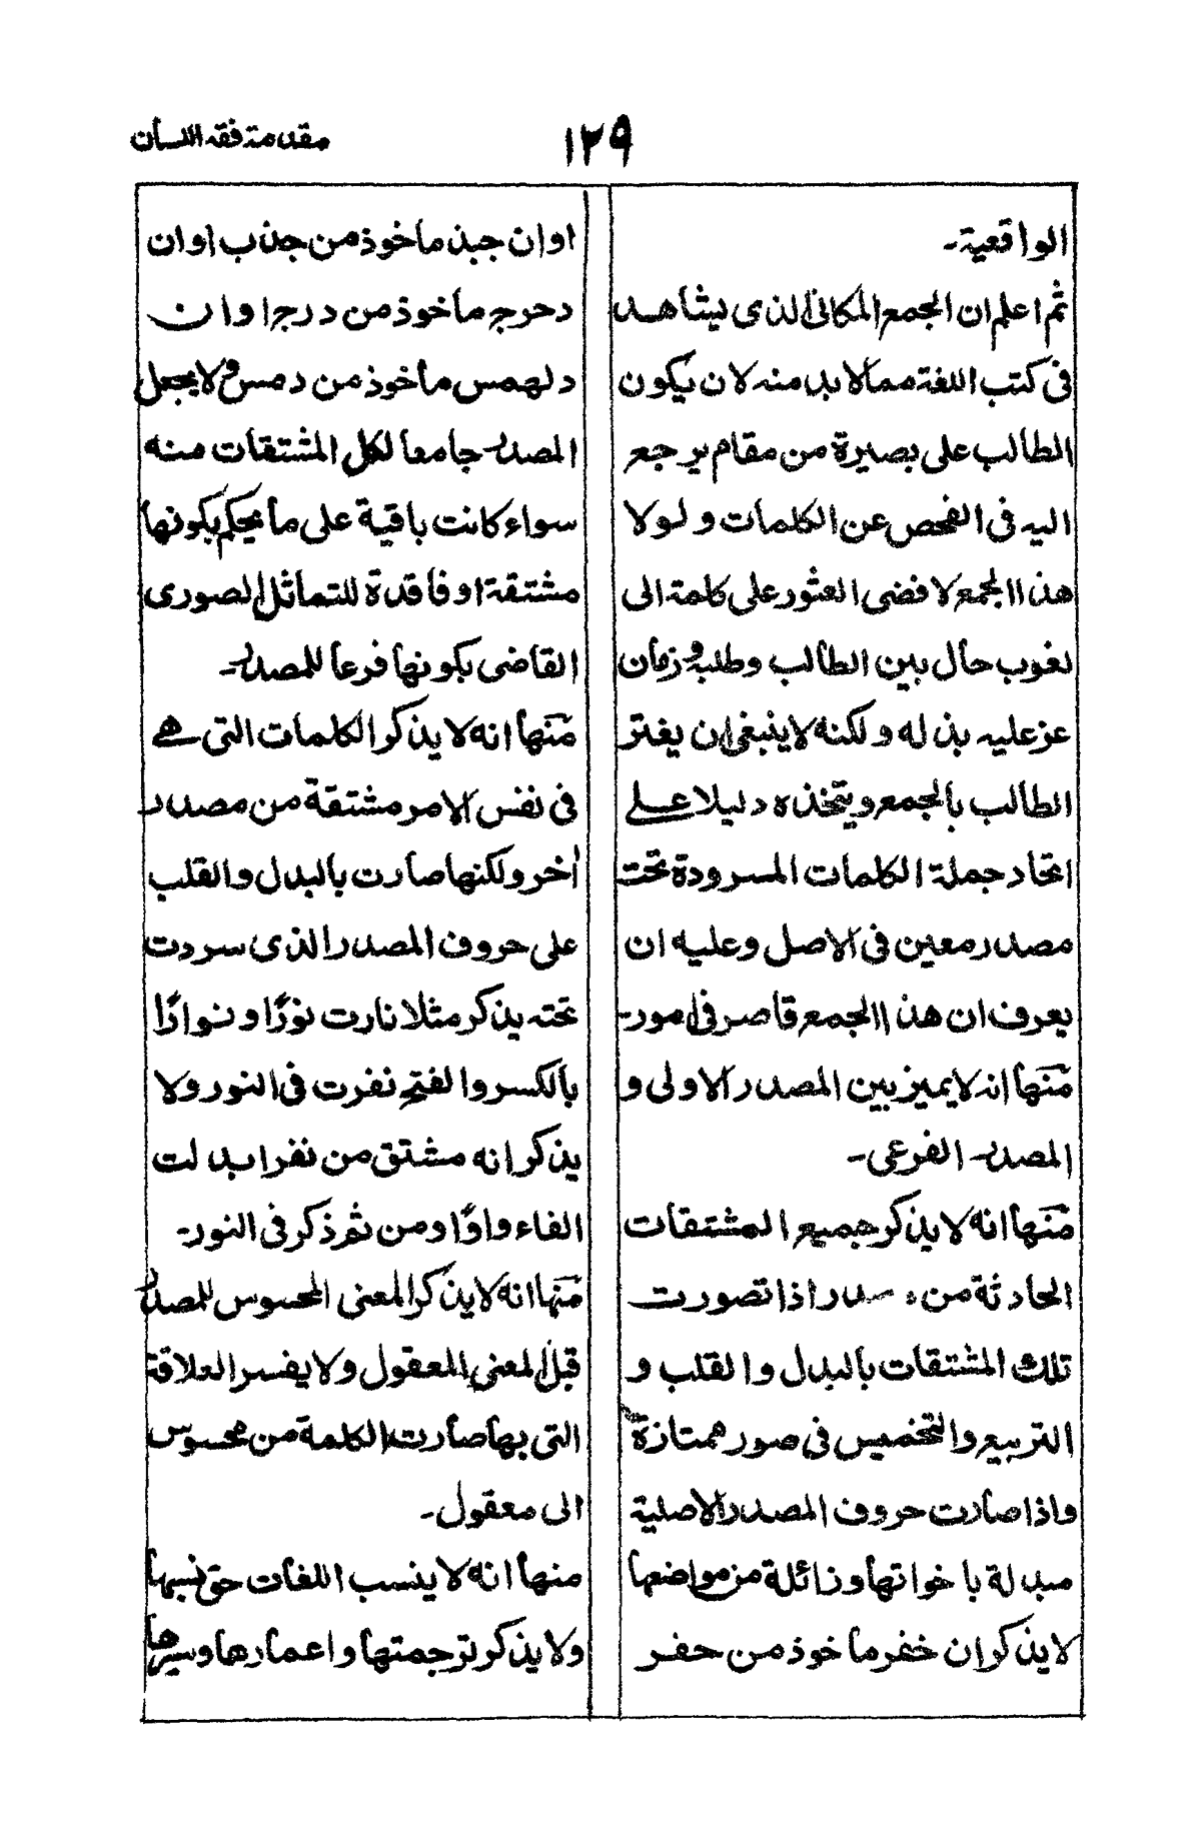 مقدمة فقه اللسان
١٢٩
الواقعية۔
ثم اعلم ان الجمع المكانى الذى يشاهد
فى كتب اللغة مما لا بد منه لان يكون
الطالب على بصيرة من مقام يرجع
اليه فى الفحص عن الكلمات و لولا
هذا الجمع لا فضى العثور على كلمة الى
لغوب حال بين الطالب وطلبه و زمان
عز عليه بذله ولكنه لا ينبغى ان يغتر
الطالب بالجمع ويتخذه دليلا على
اتحاد جملة الكلمات المسرودة تحت
مصدر معين فى الاصل وعليه ان
يعرف ان هذا الجمع قاصر فى امور۔
منها انه لا يميز بين المصدر الاولى و
المصدر الفرعى۔
منها انه لا يذكر جميع المشتقات
الحادثة من در اذا تصورت
تلك المشتقات بالبدل والقلب و
التربيع والتخميس فى صور ممتازة
واذا صارت حروف المصدر الاصلية
مبدلة باخواتها وزائلة من مواضعها
لا يذكر ان خنفر ماخوذ من حفر
اوان جبذ ماخوذ من جذب اوان
دحرج ماخوذ من درج اوان
دلهمس ماخوذ من دمس ولا يجعل
المصدر جامعا لكل المشتقات منه
سواء كانت باقية على ما يحكم بكونها
مشتقة او فاقدة للتماثل الصورى
القاضى بكونها فرعا للمصدر۔
منها انه لا يذكر الكلمات التى هے
فى نفس الامر مشتقة من مصدر
أخر ولكنها صارت بالبدل والقلب
على حروف المصدر الذى سردت
تحته يذكر مثلا نارت نورًا و نوارًا
بالكسر والفتح نفرت فى النور ولا
يذكر انه مشتق من نفر ابدلت
الفاء واوًا ومن ثم ذكر فى النور۔
منها انه لا يذكر المعنى المحسوس للمصدر
قبل المعنى المعقول ولا يفسر العلاقة
التى بها صارت الكلمة من محسوس
الى معقول۔
منها انه لا ينسب اللغات حق نسبها
ولا يذكر ترجمتها واعمارها وسيرها